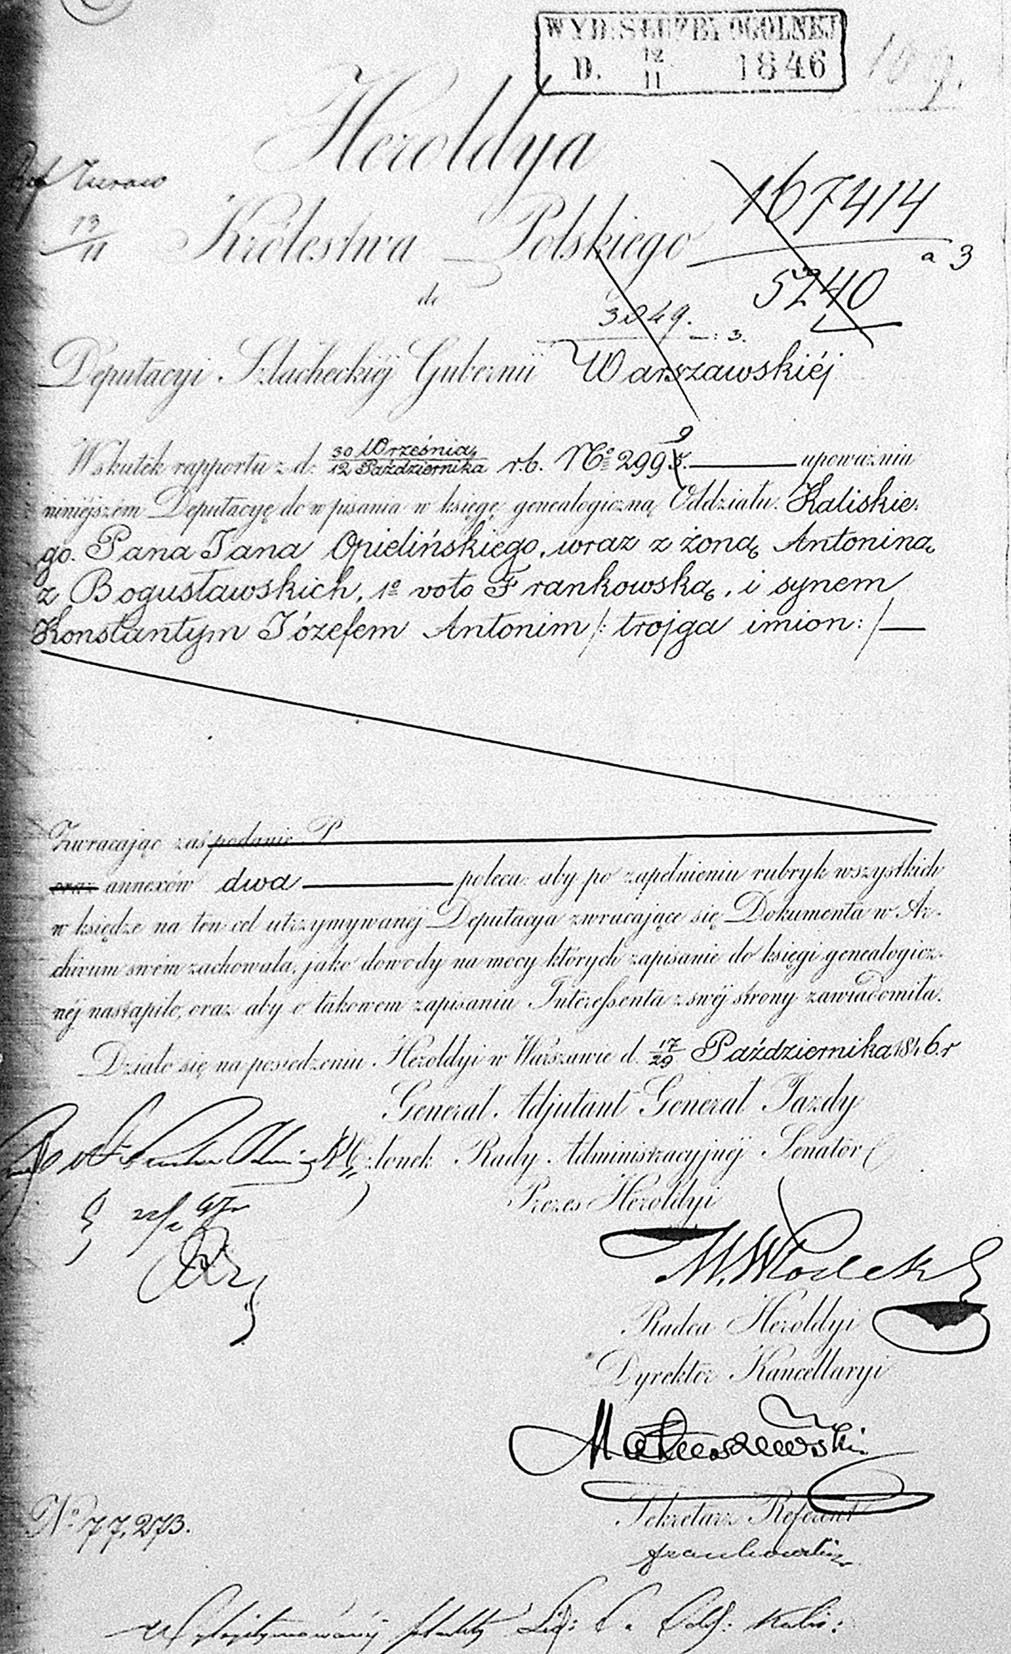 WYD: SŁUŻBY OGÓLNEJ
D. 12/11 1846
Heroldya
13/11
Królestwa Polskiego
167414
a 3
5240
do
3049.
: 3.
Deputacyi Szlacheckiéj Gubernii Warszawskiéj
Wskutek rapportu z d. 30 Września/12 Października r.b. No 2999. upoważnia
niniéjszém Deputacyę do wpisania w księgę genealogiczną Oddziału Kaliskie-
go. Pana Jana Opielińskiego, wraz z żoną Antoniną
z Bogusławskich, 1o voto Frankowską, i synem
Konstantym Józefem Antonim /: trojga imion :/
Zwracając zaś podanie P
oraz annexów dwa poleca: aby po zapełnieniu rubryk wszystkich
w księdze na ten cel utrzymywanéj Deputacya zwracające się Dokumenta w Ar-
chivum swém zachowała, jako dowody na mocy których zapisanie do księgi genealogicz-
néj nastąpiło, oraz aby o takowém zapisaniu Interessenta z swéj strony zawiadomiła.
Działo się na posiedzeniu Heroldyi w Warszawie d. 17/29 Października 1846. r
Generał Adjutant Generał Jazdy
Członek Rady Administracyjnéj Senator
Prezes Heroldyi
Radca Heroldyi
Dyrektor Kancellaryi
Sekretarz Referent
No 77,273.